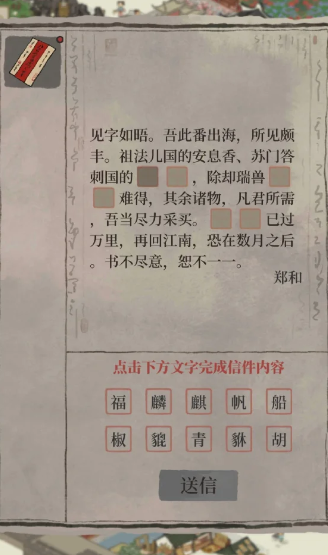 见字如晤。吾此番出海，所见颇
丰。祖法儿国的安息香、苏门答
刺国的，除却瑞兽
难得，其余诸物，凡君所需
，吾当尽力采买。已过
万里，再回江南，恐在数月之后
。书不尽意，恕不一一。
郑和
点击下方文字完成信件内容
福 麟 麒 帆 船
椒 貔 青 貅 胡
送信